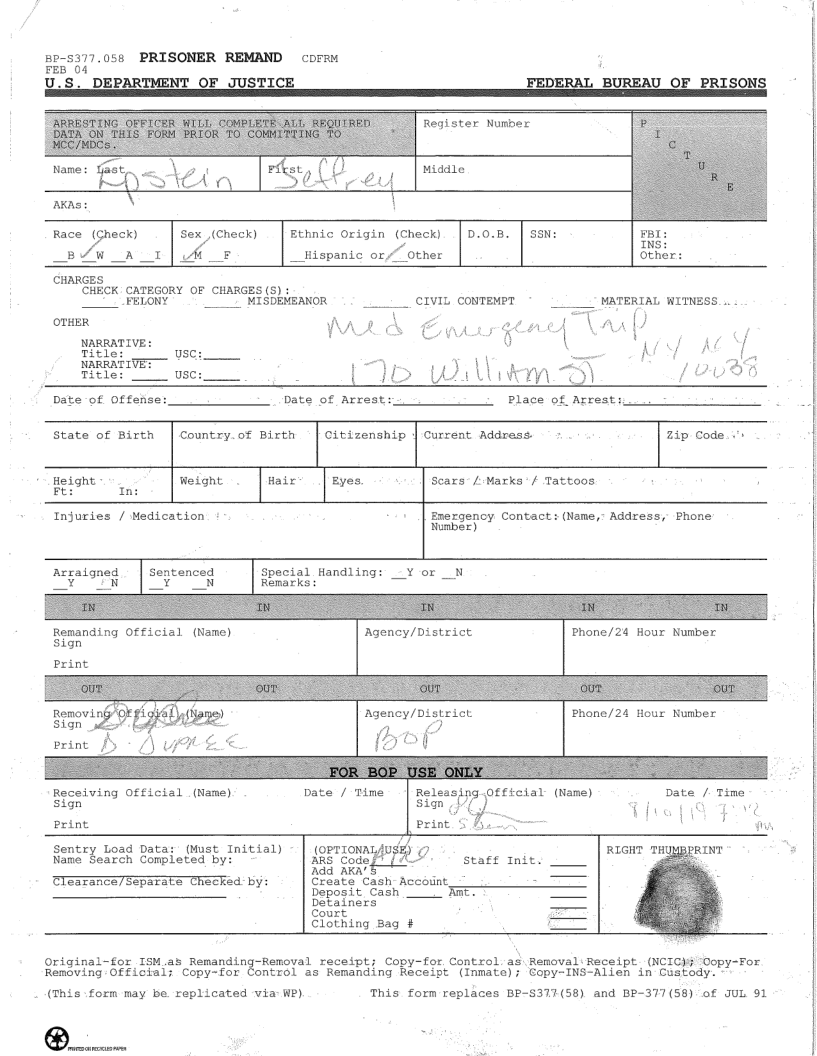 BP-S377.058 PRISONER REMAND CDFRM
FEB 04
U.S. DEPARTMENT OF JUSTICE FEDERAL BUREAU OF PRISONS
ARRESTING OFFICER WILL COMPLETE ALL REQUIRED
DATA ON THIS FORM PRIOR TO COMMITTING TO
MCC/MDCs.
Register Number
PICTURE
Name: Last Epstein
First Jeffrey
Middle
AKAs:
Race (Check) Sex (Check) Ethnic Origin (Check) D.O.B. SSN: FBI:
INS:
__B ✓W __A __I ✓M __F __Hispanic or ✓ Other Other:
CHARGES
CHECK CATEGORY OF CHARGES(S):
_____FELONY _____MISDEMEANOR _____CIVIL CONTEMPT _____MATERIAL WITNESS
OTHER
Med Emergency Trip
NARRATIVE:
Title: _____ USC:_____
NARRATIVE:
Title: _____ USC:_____
170 William ST NY NY
10038
Date of Offense:_____ Date of Arrest:_____ Place of Arrest:_____
State of Birth Country of Birth Citizenship Current Address Zip Code
Height Weight Hair Eyes Scars / Marks / Tattoos
Ft: In:
Injuries / Medication Emergency Contact:(Name, Address, Phone
Number)
Arraigned Sentenced Special Handling: __Y or __N
__Y __N __Y __N Remarks:
IN IN IN IN IN
Remanding Official (Name) Agency/District Phone/24 Hour Number
Sign
Print
OUT OUT OUT OUT OUT
Removing Official (Name) Agency/District Phone/24 Hour Number
Sign
BOP
Print D. DUPREE
FOR BOP USE ONLY
Receiving Official (Name) Date / Time Releasing Official (Name) Date / Time
Sign Sign 8/10/19 7:12
AM
Print Print S.
Sentry Load Data: (Must Initial) (OPTIONAL USE) RIGHT THUMBPRINT
Name Search Completed by: ARS Code Staff Init. _____
Add AKA's
Clearance/Separate Checked by: Create Cash Account
Deposit Cash _____ Amt.
Detainers
Court
Clothing Bag #
Original-for ISM as Remanding-Removal receipt; Copy-for Control as Removal Receipt (NCIC); Copy-For
Removing Official; Copy-for Control as Remanding Receipt (Inmate); Copy-INS-Alien in Custody.
(This form may be replicated via WP) This form replaces BP-S377(58) and BP-377(58) of JUL 91
PRINTED ON RECYCLED PAPER